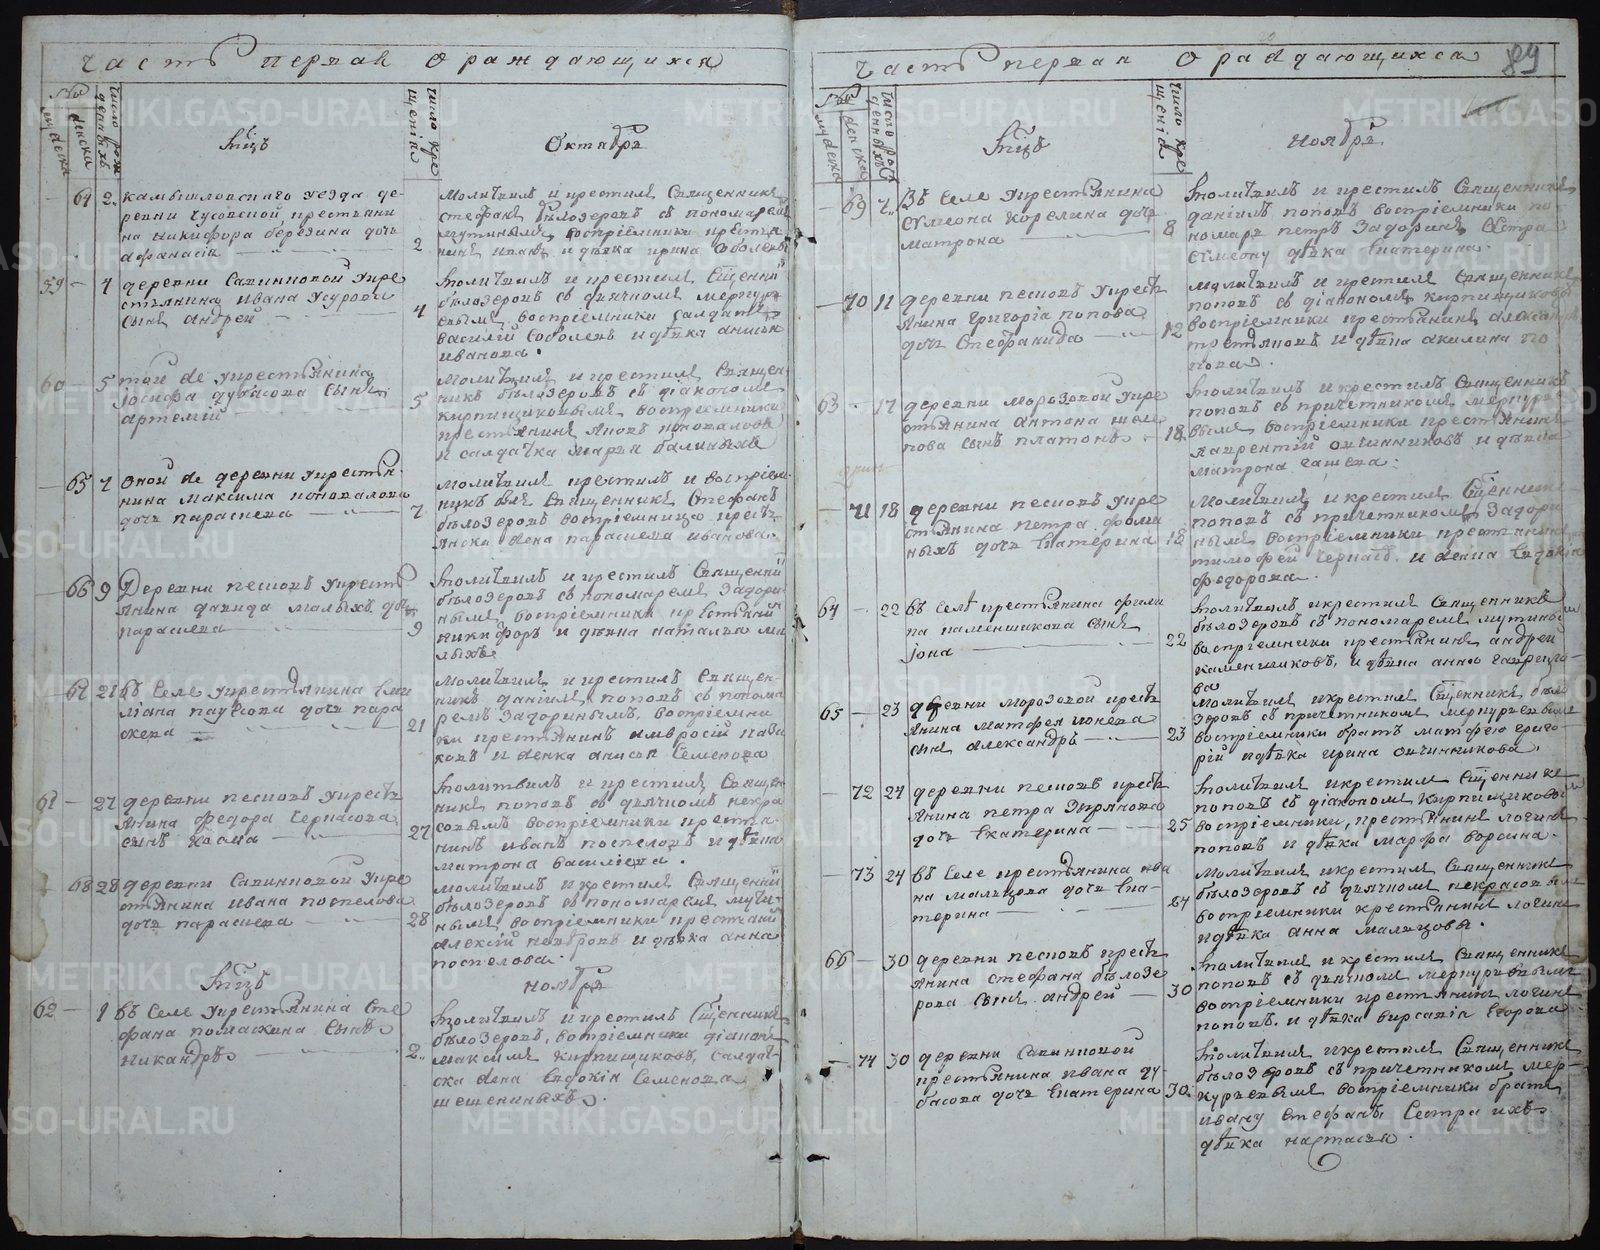 часть первая о раждающихся
№ъ
мужеска
женска
число рожденныхъ
Мцъ
число крещенiя
Октября
61 2. камышловскаго уезда де-
ревни Чусовской крестьяни
на Никифора березина дочь
афанасiя 2
Молитвилъ и крестилъ Священникъ
стефанъ бѣлозеровъ съ пономаремъ
мутинымъ, воспрiемники крестья
59 4 деревни Савинновой укре
стьянина ивана
сынъ андрей 4
Молитвилъ и крестилъ Сщенни
бѣлозеровъ съ дьячкомъ меркурь
евымъ, воспрiемники салдатъ
василiй соболевъ и дѣвка
иванова.
60 5 той же укрестьянина
iосифа дубасова сынъ
артемiй 5
Молитвилъ и крестилъ Священ
никъ бѣлозеровъ съ дiакономъ
кирпищиковымъ воспрiемники
крестьянинъ коновалов
и салдатка марья
65 7 Оной же деревни укрестья-
нина максима коновалова
дочь параскева 7
Молитвилъ крестилъ и воспрiем-
никъ былъ Священникъ Стефанъ
бѣлозеровъ воспрiемницо кресть
янска жена параскева иванова.
66 9 Деревни песковъ укресть
янина давида малыхъ дочь
параскева 9
Молитвилъ и крестилъ Священни
бѣлозеровъ съ пономаремъ задори
нымъ воспрiемники крестьянинъ
никифоръ и дѣвка наталья ма
лыхъ
67 21 въ Селе укрестьянина Еми
лiана паускова дочь пара
скева 21
Молитвилъ и крестилъ Священ-
никъ данiилъ поповъ съ понома
ремъ Задоринымъ, воспрiемни
ки крестьянинъ амвросiй
ковъ и женка анисья Семенова
61 27 деревни песковъ укресть
янина федора Чернасова
сынъ козма 27
Молитвилъ и крестилъ Священ
никъ поповъ съ дьячкомъ некра
совымъ воспрiемники крестья
нинъ иванъ поспеловъ и дѣвка
матрона василiева.
68 28 деревни Савинновой укре
стьянина ивана поспелова
дочь параскева 28
Молитвилъ и крестилъ Священни
бѣлозеровъ с пономаремъ мути-
нымъ, воспрiемники крестьяни
алексiй и дѣвка анна
поспелова.
Мцъ
ноября
62 1 въ Селе укрестьянина Сте
фана помаскина сынъ
никандръ 2.
Молитвилъ и крестилъ Сщенникъ
бѣлозеровъ, воспрiемники дiаконъ
максимъ кирпищиковъ, салдат-
ска жена Евдокiя Семенова
шешениныхъ.
часть первая о раждающихся
89
№ъ
мужеска
женска
число рожденныхъ
Мцъ
число крещенiя
ноября
69 7. Въ Селе укрестьянина
Сѵмеона Корелина дочь
матрона 8
Молитвилъ и крестилъ Священникъ
данiилъ поповъ воспрiемники по
номарь петръ Задоринъ Сестра
Сѵмеону дѣвка Екатерина.
70 11 деревни песковъ укресть
янина григорiя попова
дочь Стефанида 12
Молитвилъ и крестилъ Священникъ
поповъ съ дiакономъ кирпищиковымъ
воспрiемники крестьянинъ
и дѣвка акилина по
пова.
63 17 деревни морозовой укре
стьянина антона шеле
пова сынъ платонъ 18
Молитвилъ и крестилъ Священникъ
поповъ съ причетникомъ меркурь
вымъ воспрiемники крестьянинъ
лаврентiй овчинниковъ и дѣвка
матрона гашева.
71 18 деревни песковъ укре
стьянина петра
ныхъ дочь Екатерина 18
Молитвилъ и крестилъ Сщенникъ
поповъ съ причетникомъ Задори
нымъ воспрiемники крестьянинъ
тимофей и женка Евдокiя
федорова.
64 22 въ Селѣ крестьянина фили
па каменщикова сынъ
iона 22
Молитвилъ и крестилъ Священникъ
бѣлозеровъ съ пономаремъ мутины
воспрiемники крестьянинъ андрей
каменщиковъ, и дѣвка анна гаврило-
ва
65 23 деревни морозовой кресть
янина матфея ионева
сынъ александръ 23
Молитвилъ и крестилъ Сщенникъ бѣло
зеровъ съ причетникомъ меркурьевымъ
воспрiемники братъ матфею григо-
рiй и дѣвка ирина овчинникова.
72 24 деревни песковъ кресть
янина петра Зырянова
дочь Екатерина 25
Молитвилъ и крестилъ Сщенникъ
поповъ съ дiакономъ Кирпищиковы
воспрiемники, крестьянинъ логинъ
поповъ и дѣвка марфа
73 24 въ Селе крестьянина ива
на малцова дочь Ека-
терина 24
Молитвилъ и крестилъ Священникъ
бѣлозеровъ съ дьячкомъ некрасовымъ
воспрiемники крестьянинъ логинъ
и дѣвка анна малцовы.
66 30 деревни песковъ кресть
янина стефана бѣлозе
рова сынъ андрей 30
Молитвилъ и крестилъ Священникъ
поповъ съ дьячкомъ меркурьевымъ
воспрiемники крестьянинъ логинъ
поповъ. и дѣвка вирсавiя Егорова
74 30 деревни Савинновой
крестьянина ивана ду-
басова дочь Екатерина 30.
Молитвилъ и крестилъ Священникъ
бѣлозеровъ съ причетникомъ мер-
курьевымъ воспрiемники братъ
ивану Стефанъ Сестра ихъ
дѣвка настасья.
METRIKI.GASO-URAL.RU